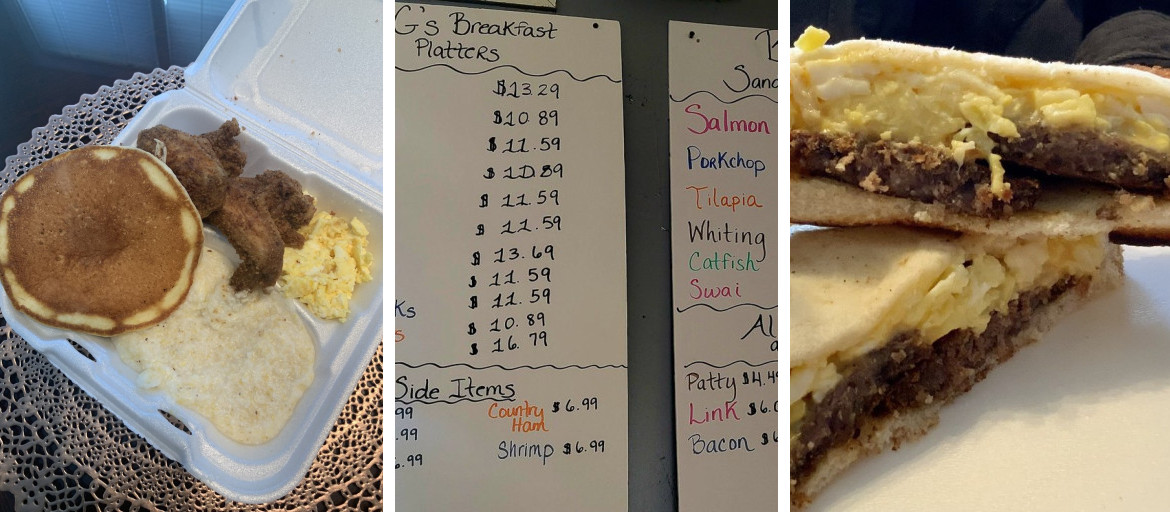 G's Breakfast
Platters
$13.29
$10.89
$11.59
$10.89
$11.59
$11.59
$13.69
$11.59
$11.59
$10.89
$16.79
Side Items
Country $6.99
Ham
Shrimp $6.99
Salmon
Porkchop
Tilapia
Whiting
Catfish
Swai
Patty $4.4
Link $6.
Bacon $